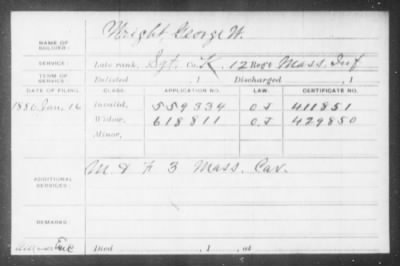 Wright George W.
NAME OF SOLDIER:
SERVICE: Late rank, Sgt. Co. K, 12 Reg't Mass. Inf
TERM OF SERVICE: Enlisted , 1 Discharged , 1
DATE OF FILING. CLASS. APPLICATION NO. LAW. CERTIFICATE NO.
1886 Jan. 16 Invalid, 559334 411851
Widow, 618811 429850
Minor,
ADDITIONAL SERVICES: M. & F 3 Mass. Cav.
REMARKS:
Died , 1 , at